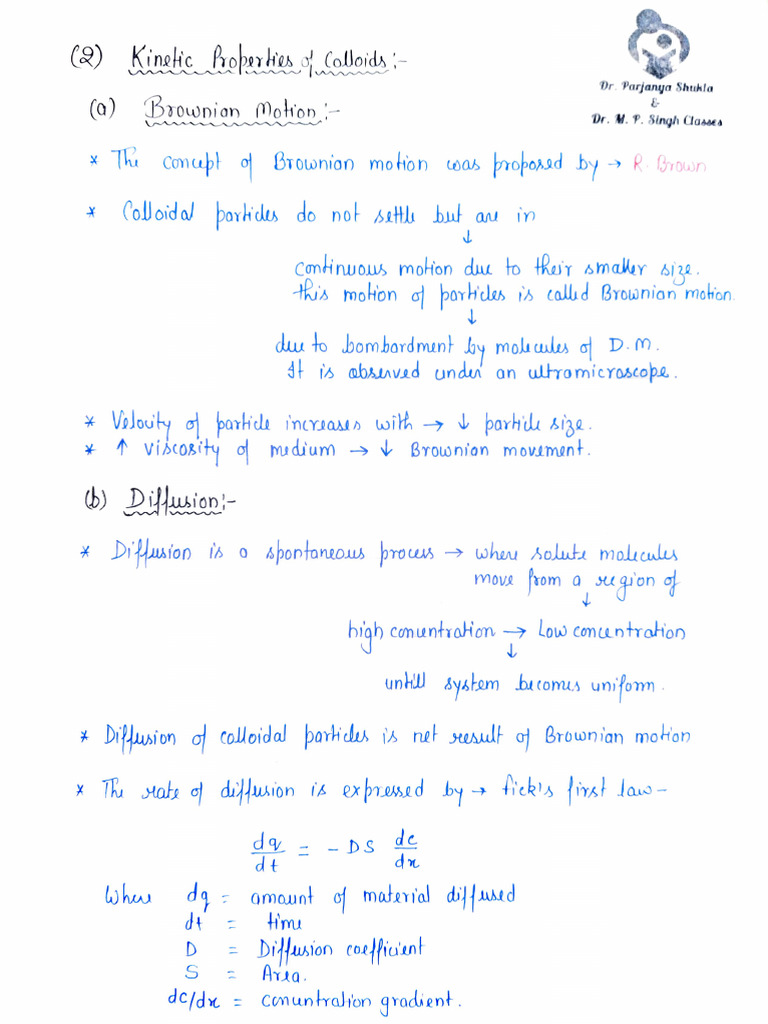 (2) Kinetic Properties of Colloids:-
Dr. Parjanya Shukla
&
Dr. M. P. Singh Classes
(a) Brownian Motion:-
* The concept of Brownian motion was proposed by → R. Brown
* Colloidal particles do not settle but are in
↓
continuous motion due to their smaller size.
this motion of particles is called Brownian motion.
↓
due to bombardment by molecules of D.M.
It is observed under an ultramicroscope.
* Velocity of particle increases with → ↓ particle size.
* ↑ viscosity of medium → ↓ Brownian movement.
(b) Diffusion:-
* Diffusion is a spontaneous process → where solute molecules
move from a region of
↓
high concentration → Low concentration
↓
untill system becomes uniform.
* Diffusion of colloidal particles is net result of Brownian motion
* The rate of diffusion is expressed by → fick's first law-
dq/dt = - DS dc/dx
Where dq = amount of material diffused
dt = time
D = Diffusion coefficient
S = Area.
dc/dx = concentration gradient.